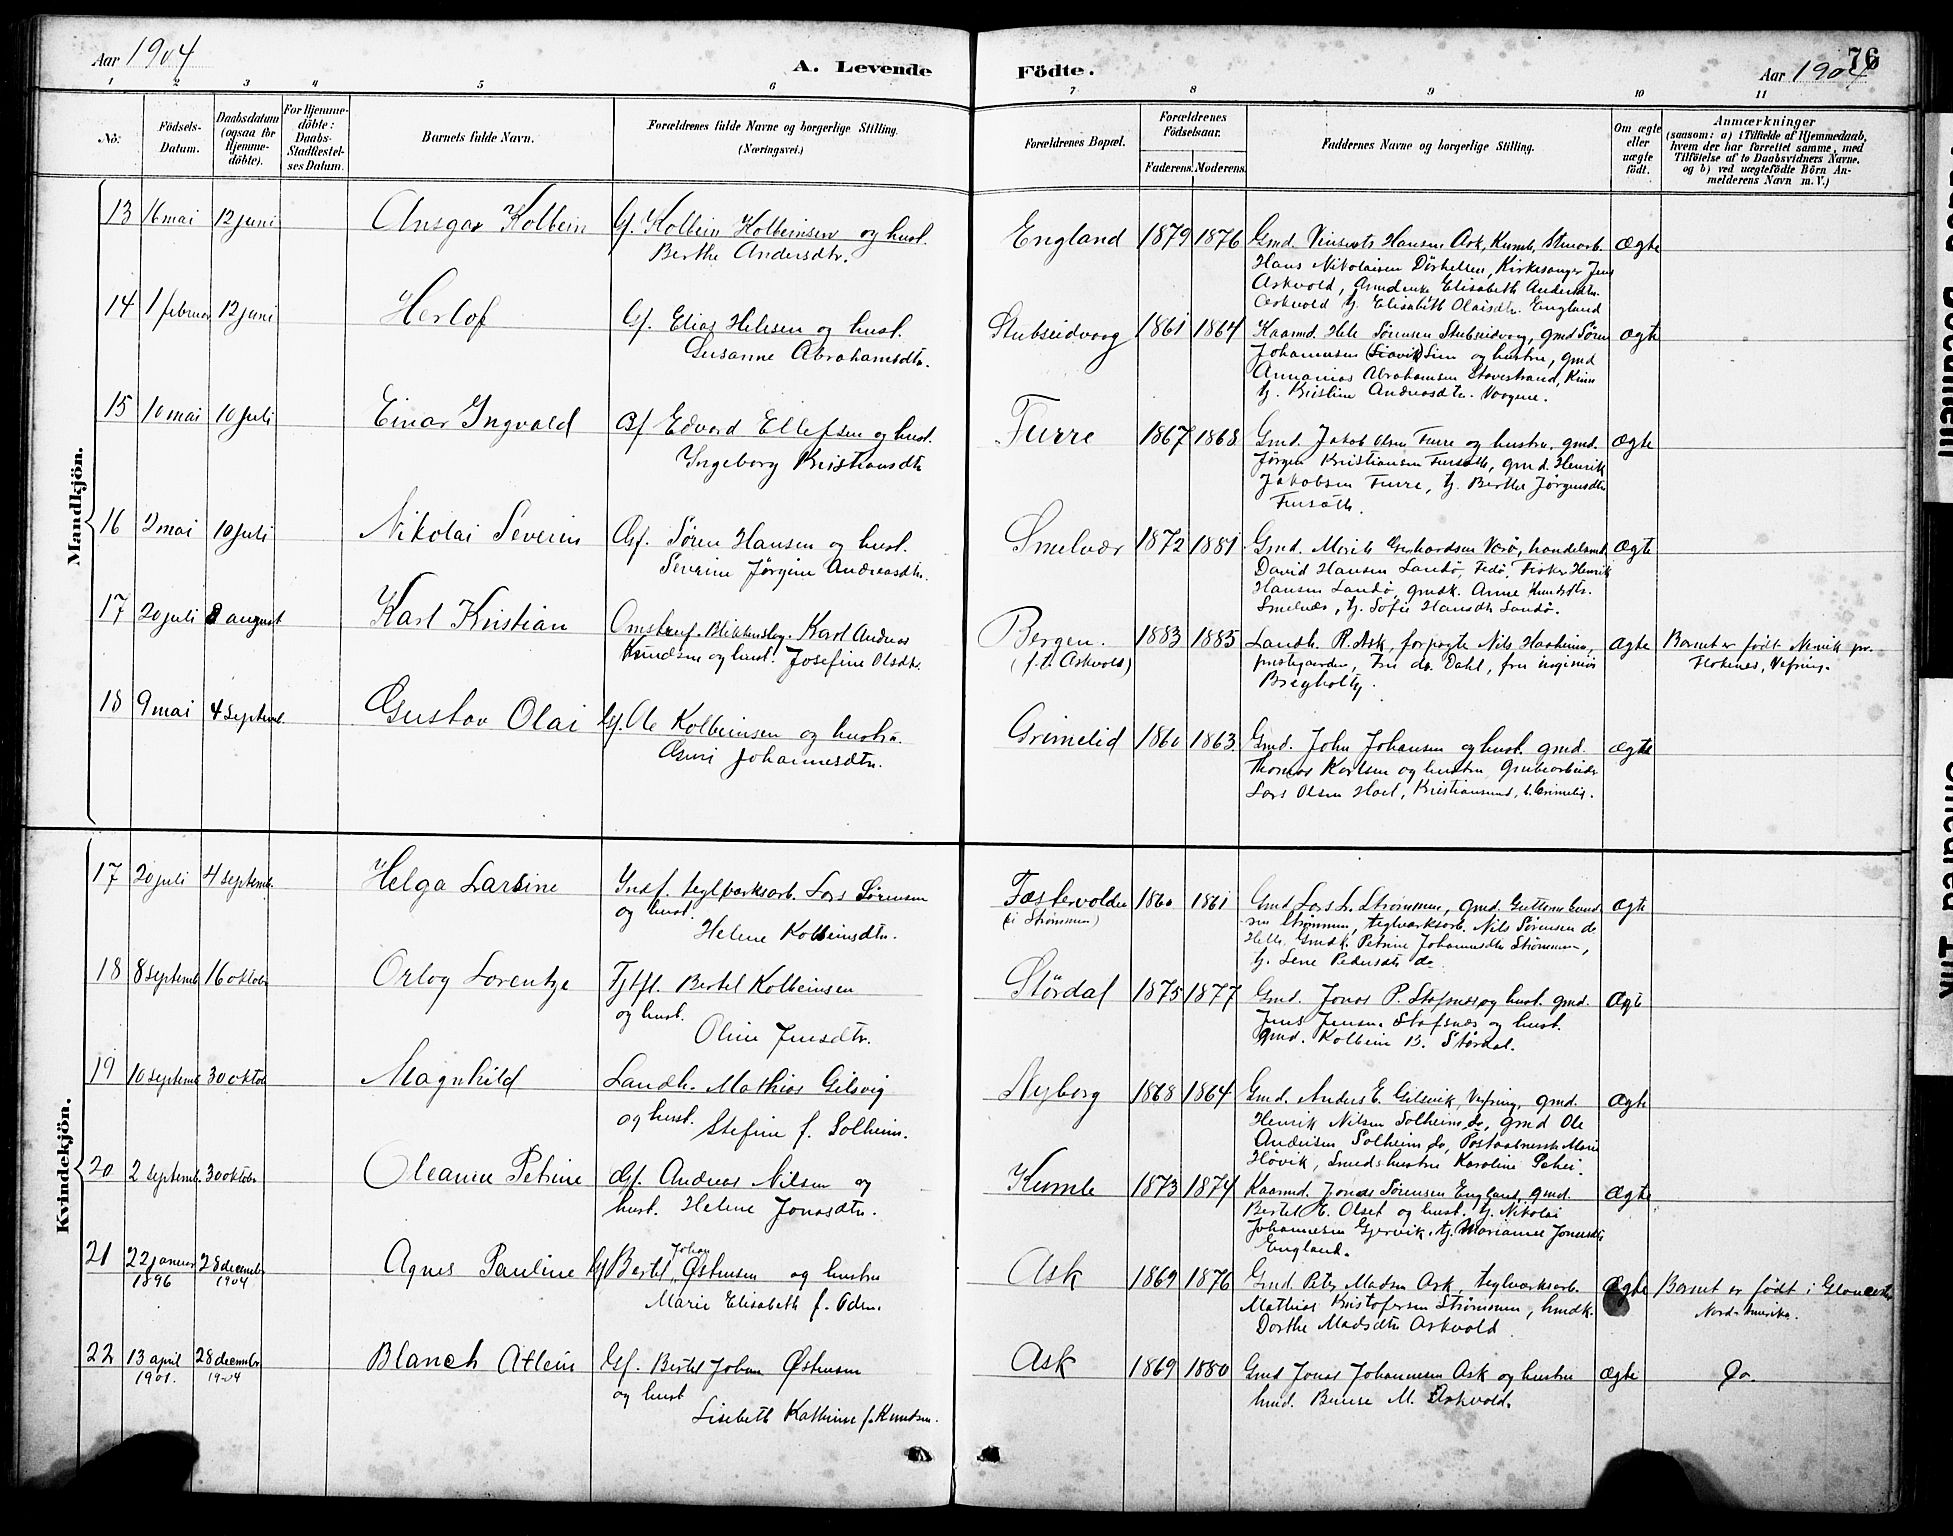 Aar 1904
A. Levende
Födte.
76
Aar 1904
1 2 3 4 5 6 7 8 9 10 11
No.
Födsels-
Datum.
Daabsdatum
(ogsaa for
Hjemme-
döbte).
For Hjemme-
döbte:
Daabs-
Stadfæstel-
ses Datum.
Barnets fulde Navn.
Forældrenes fulde Navne og borgerlige Stilling.
(Næringsvei.)
Forældrenes Bopæl.
Forældrenes
Födselsaar.
Faderens. Moderens.
Faddernes Navne og borgerlige Stilling.
Om ægte
eller
uægte
födt.
Anmærkninger
(saasom: a) i Tilfælde af Hjemmedaab,
hvem der har forrettet samme, med
Tilföielse af to Daabsvidners Navne.
og b) ved uægtefödte Börn An-
melderens Navn m. V.)
Mandkjön.
13 16 mai 12 juni Ansgar Kolbein Gf. Kolbein Kolbeinsen og hust.
Berthe Andersdtr.
England 1879 1876 Gmd. Vinsents Hansen Ask, Kumle, Stenarb.
Hans Nikolaisen Dörhelsen, Kirkesanger Jens
Askvold, Elisabeth Andersdtr.
Askvold tj. Elisabeth Olaisdtr. England
ægte
14 1 februar 12 juni Herlof Gf. Elias Helesen og hust.
Susanne Abrahamsdtr.
Stubseidvaag 1861 1864 Kaarmd. Hele Sörensen Stubseidvaag, gmd Sören
Johannesen (Siavik) Sim og hustru, gmd
Annanias Abrahamsen Stavestrand, Kinn
tj. Kristine Andreasdtr. Vaagene.
ægte
15 10 mai 10 juli Einar Ingvald Gf Edvard Ellefsen og hust.
Ingeborg Kristiansdtr
Furre 1867 1868 Gmd. Jakob Olsen Furre og hustru. gmd.
Jörgen Kristiansen Fursæth, gmd. Henrik
Jakobsen Furre, tj. Berthe Jörgensdtr
Fursæth.
ægte
16 2 mai 10 juli Nikolai Severin Gf. Sören Hansen og hust.
Severine Jörgine Andreasdtr.
Smelvær 1872 1881 Gmd. Morits Gerhardsen Værö, handelsmd.
David Hansen Landö, Fedö, Fisker Henrik
Hansen Landö, gmdk. Anne Knudsdtr.
Smelvær, tj. Sofie Hansdtr Landö.
ægte
17 20 juli 8 august Karl Kristian Blikkenslag. Karl Andreas
Knudsen og hust. Josefine Olsdtr.
Bergen.
(f. t. Askvold)
1883 1885 Landh. R. Ask, forpagte Nils Haaheim,
prestegaarden, Fru dr. Dahl, fru ingeniör
Bregholtz.
ægte Barnet er födt Nervik pr.
Flokenes, Vefring.
18 9 mai 4 septembr. Gustav Olai Gf. Ole Kolbeinsen og hustru.
Guri Johannesdtr.
Grimelid 1860 1863 Gmd. John Johansen og hust. gmd.
Thomas Karlsen og hustru, Grubearbeider
Lars Olsen Hoel, Kristiansund, t. Grimelid.
ægte
Kvindekjön.
17 20 juli 4 septemb. Helga Larsine Indf. teglværksarb. Lars Sörensen
og hust.
Helene Kolbeinsdtr.
Fæstervolden
(i Strömmen)
1860 1861 Gmd Lars L. Strömmen, gmd. Guttorm Gund-
sen Strömmen, teglværksarb. Nils Sörensen do
Helle. Gmdk. Petrine Johannesdtr Strömmen,
tj. Lene Pedersdtr do
ægte
18 8 septemb 16 oktobr Orlog Lorentze Fjtfl. Bertel Kolbeinsen
og hust.
Oline Jensdtr.
Stördal 1875 1877 Gmd. Jonas P. Stafsnes og hust. gmd.
Jens Jensen Stafsnes og hust.
gmd. Kolbein B. Stördal.
ægte
19 10 septemb 30 oktob Magnhild Landh. Mathias Gilsvig
og hust.
Stefine f. Solheim.
Nyborg 1868 1864 Gmd. Anders E. Gilsvik, Vefring, gmd.
Henrik Nilsen Solheim do, gmd Ole
Andersen Solheim do, Postaabnersk Marie
Hövik, Smedshustru Karoline
ægte
20 2 septemb. 30 oktobr Oleanne Petrine Gf. Andreas Nilsen og
hust. Helene Jonasdtr.
Kumle 1873 1874 Kaarmd. Jonas Sörensen England, gmd.
Bertel E. Olset og hust. tj. Nikolai
Johannesen Gjervik, tj. Marianne Jonasdtr
England.
ægte
21 22 januar 28 decembr Agnes Pauline Gf Bertel Johan Östensen og hustru
1896 1904
Marie Elisabeth f. Odsn.
Ask 1869 1876 Gmd Peter Madsen Ask, teglværksarb.
Mathias Kristofersen Strömmen, hmdk.
Dorthe Madsdtr Askvold
ægte Barnet er födt i Gloucester
Nord-Amerika.
22 13 april 28 decembr Blanch Atlein Gf. Bertel Johan Östensen
1901. 1904
og hust
Lisebeth Kathrine f. Knudsen.
Ask 1869 1880 Gmd Jonas Johannesen Ask og hustru
hmd. M. Askvold.
ægte Do.